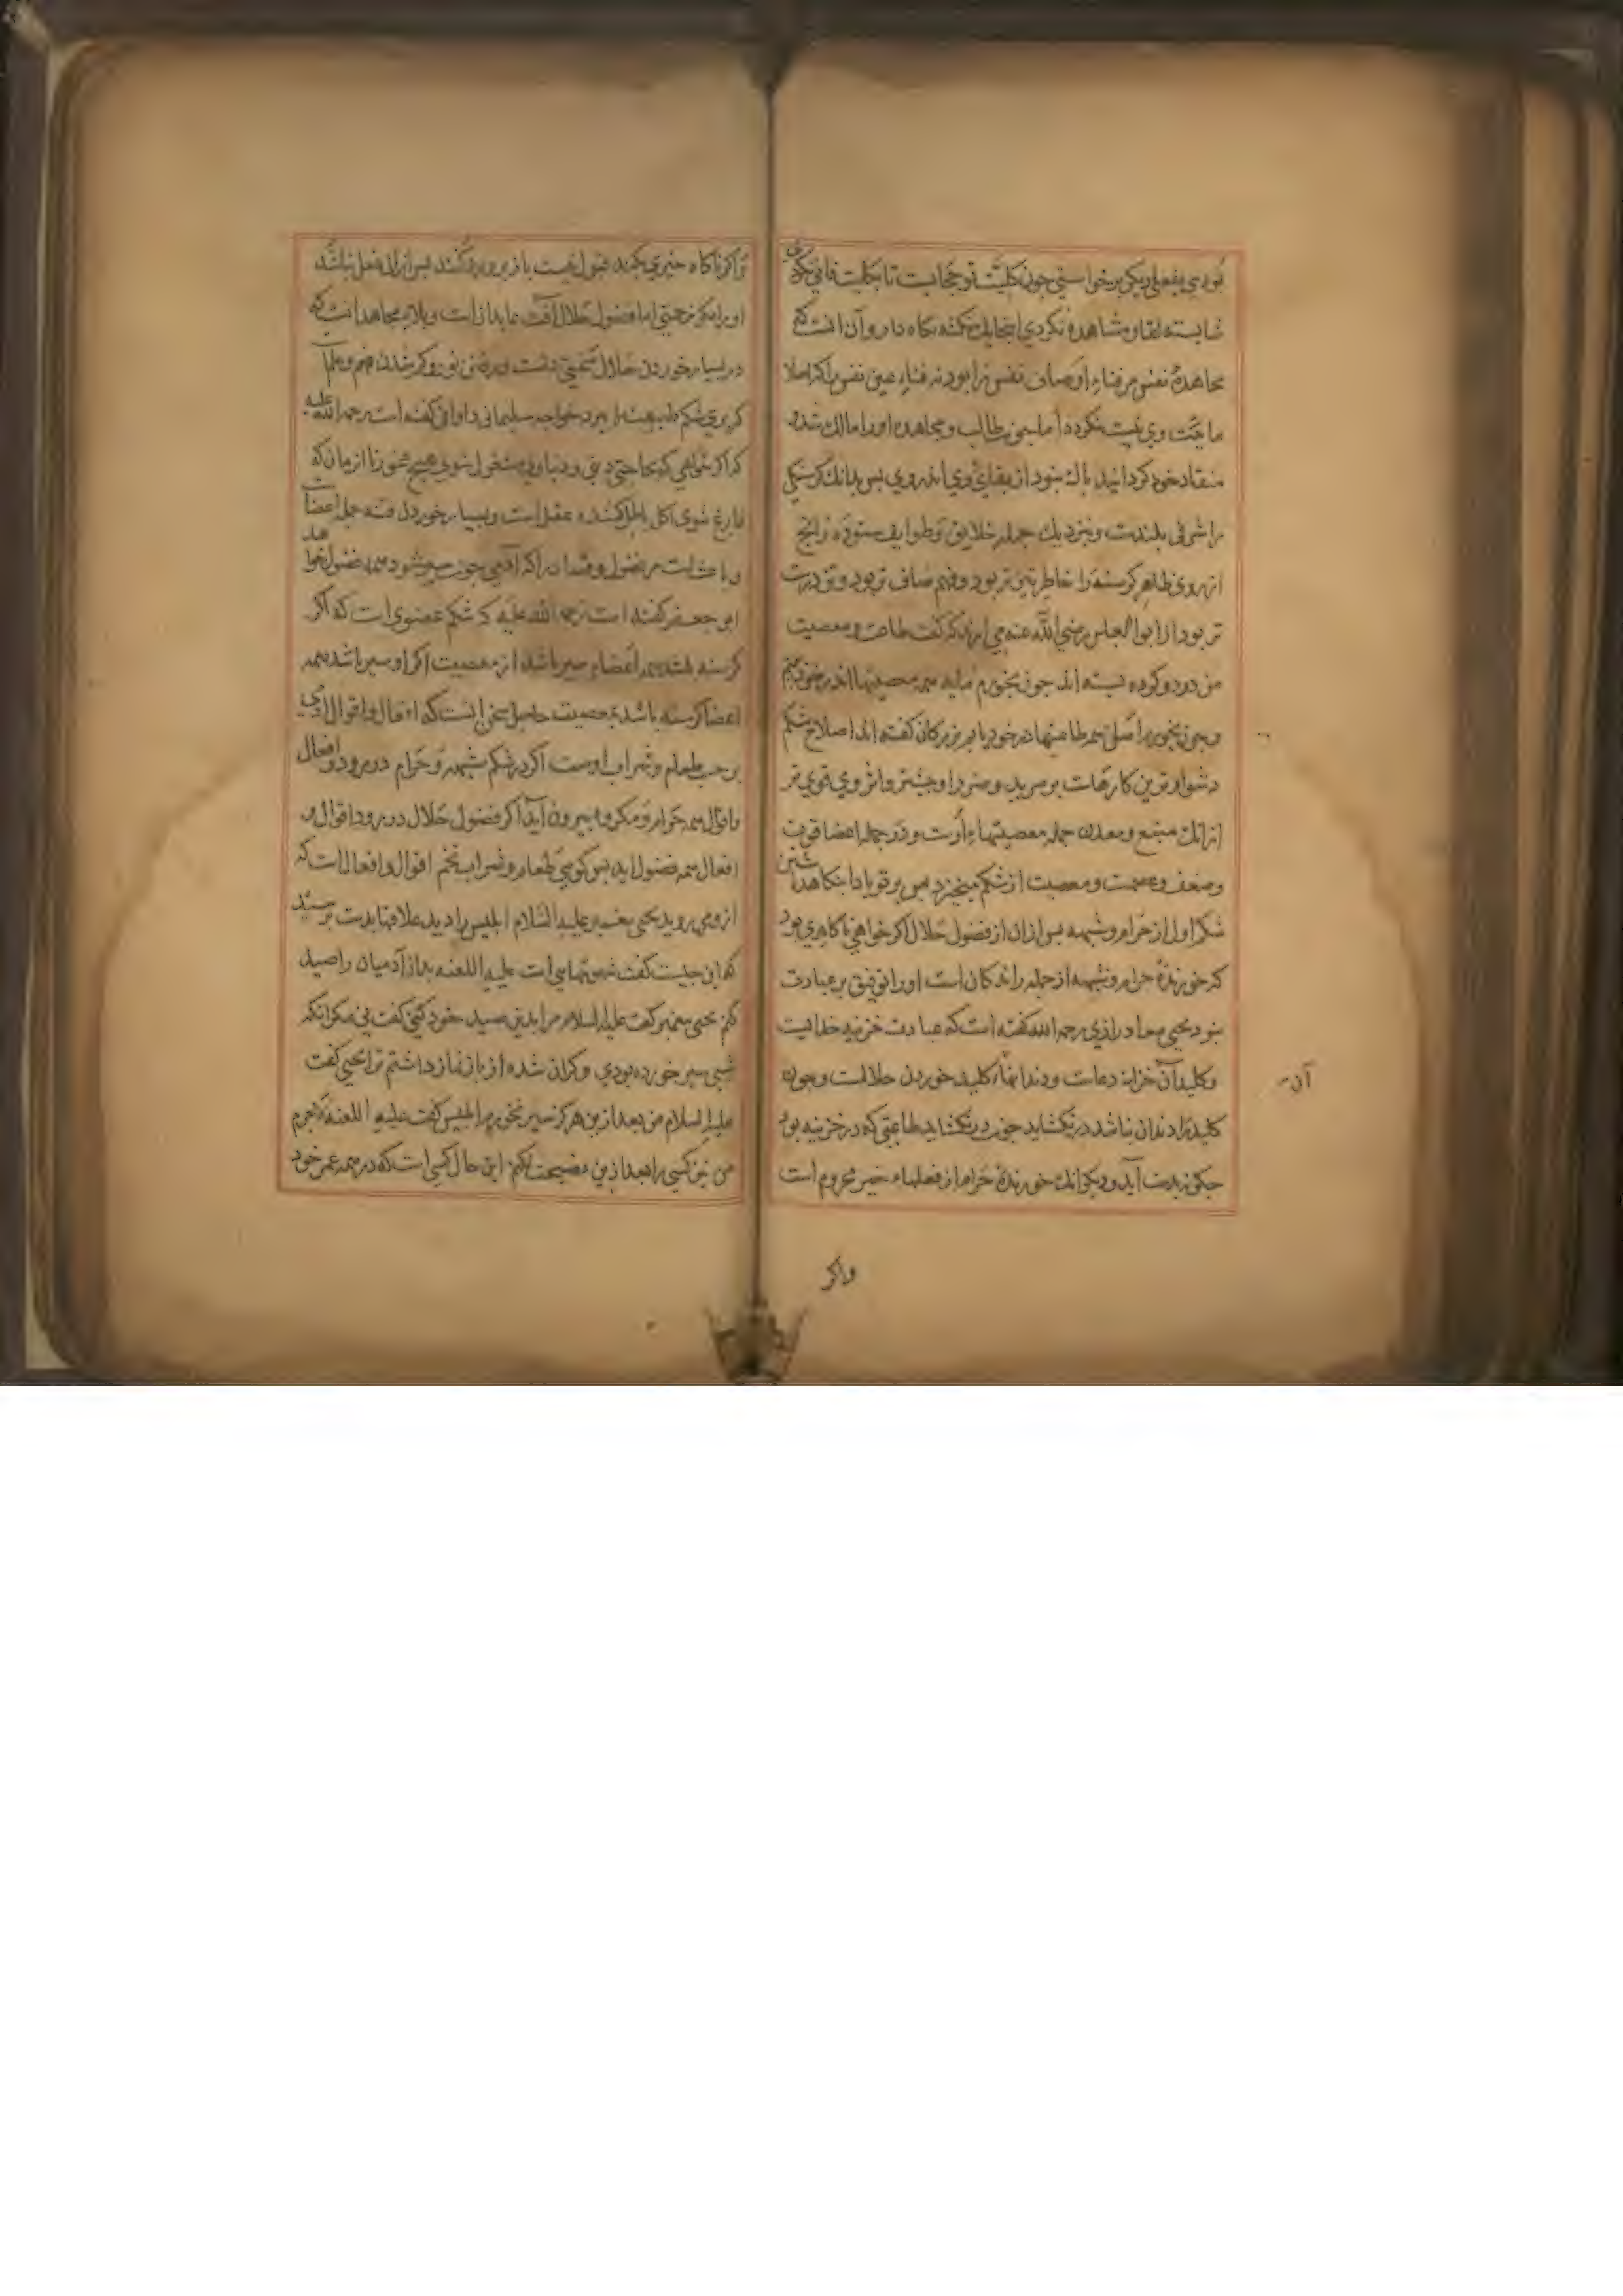 بودي بفعلی دیکر برخواستی جون کلیت تو حجابست تا بکلیت فانی نکردی
شایسته لقا و مشاهده نکردي اینجا یک نکته نکاه دار و آن انست که
مجاهدهٔ نفس مر فناء اوصاف نفس را بود نه فناء عین نفس را که اصلا
ماهیت وی نیست نکردد اما جون طالب و مجاهده او را مالک شد و
منقاد خود کردانید باک نبود از بقای وی اندر وي بس بدانک کرسنکی
را شرفی بلندست و بنزدیک جمله خلایق و طوایف ستوده زانج
از روی ظاهر کرسنه را خاطر تیزتر بود و فهم صافی تر بود و تن درست
تر بود از ابو العباس رضي الله عنه می ارند که کفت طاعت و معصیت
من در دو کرده بسته اند جون بخورم مایه همه معصیتها اندر خود بینم
و جون نخورم اصل همه طاعتها در خود یابم بزرکان کفته اند اصلاح شکم
دشوارترین کارهاست بر مرید و ضرر او بیشتر و اثر وی قوی تر
از انک منبع و معدن جمله معصیتهاء اوست و در جمله اعضا قوت
و ضعف و عصمت و معصیت از شکم میخیزد بس بر تو بادا بنکاهداشتن
شکم اول از حرام و شبهه بس ازان از فضول حلال اکر خواهی تا کاری بود
که خورندهٔ حرام و شبهه از جمله راندکان است او را توفیق بر عبادت
نبود یحیی معاد رازي رحمه الله کفته است که عبادت خزینه خدایست
و کلید آن خزانه دعاست و دندانهاء کلید خوردن حلالست و جون
آن
کلید را دندان نباشد در نکشاید جون در نکشاید طاعتی که در خزینه بود
جکونه بدست آید و دیکر انک خورندهٔ حرام از فعلهاء خیر محروم است
و اکر
و اکر ناکاه خیري بکند قبول نیست باز بر وي رد کنند بس او را از ان فعل نباشد
اما فضول حلال آفت عابدان است و بلای مجاهدانست که
در بسیار خوردن حلال سختی دلست و رفتن نور و کم شدن فهم و علم
خواجه سلیمانی دارانی کفته است رحمه الله علیه
که اکر خواهی که بحاجتی دینی و دنیاوی مشغول شوی هیج مخور تا از مان که
فارغ شوی که اکل باطل کننده عقل است و بسیار خوردن فتنه جمله اعضاست
و باعث است مر فضول و فساد را که آدمی جون سیر شود همه فضول خواهد
ابو جعفر کفته است رحمه الله علیه که شکم عضوی است که اکر
کرسنه باشد همه اعضاء سیر باشد از معصیت اکر او سیر باشد همه
اعضا کرسنه باشد بمعصیت حاصل سخن انست که افعال و اقوال ادمی
بر حسب طعام و شراب اوست اکر در شکم شبهه و حرام در رود افعال
و اقوال همه حرام و مکروه بیرون آید اکر فضول حلال در رود اقوال و
افعال همه فضول اید بس کویی طعام و شراب تخم اقوال و افعال است که
از وي می روید یحیی بغمبر علیه السلام ابلیس را دید علاقها بدست برسید
که این جیست کفت شهوتهاء است علیه اللعنه بداز آدمیان را صید
کنم یحیی بغمبر کفت علیه السلام مرا بدین صید خود کنی کفت نی مکر انکه
شبی سیر خورده بودي و کران شده از باز نماز داشتم ترا یحیی کفت
علیه السلام من بعد ازین هرکز سیر نخورم ابلیس کفت علیه اللعنه لاجرم
من نیز کسی را بعد ازین نصیحت نکنم این حال کسی است که در همه عمر خود